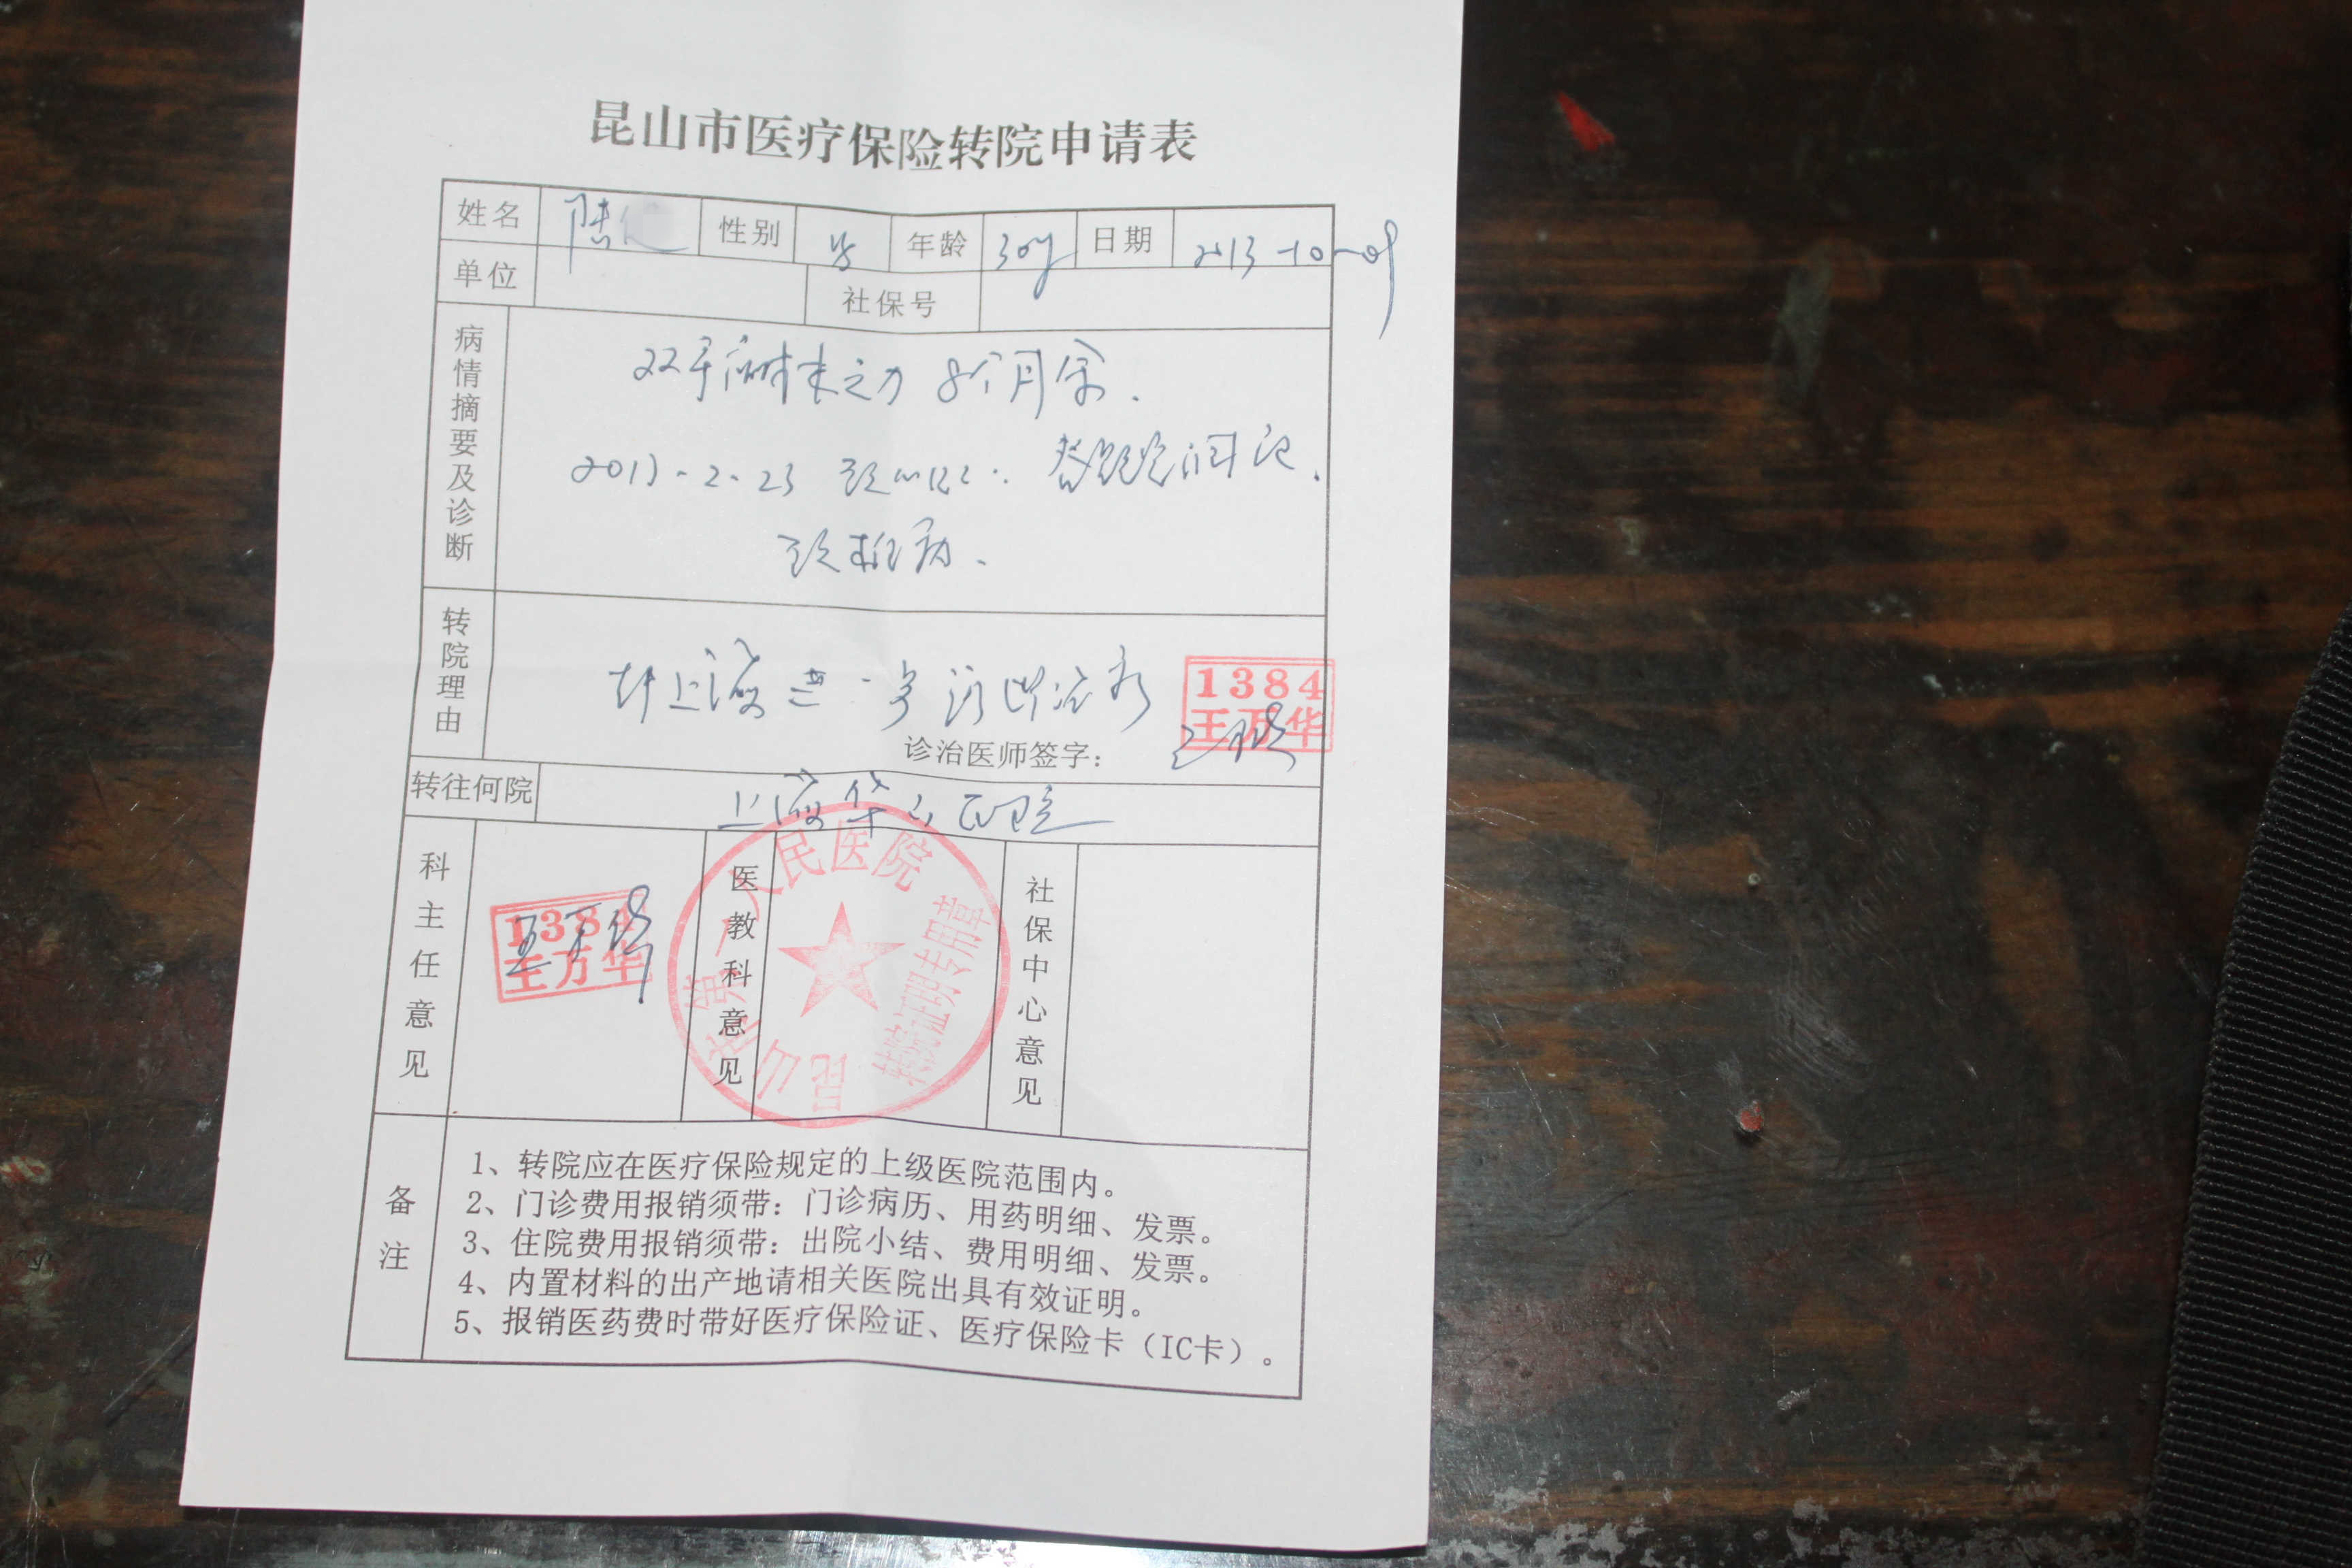 昆山市医疗保险转院申请表
姓名 陆 性别 男 年龄 30y 日期 2013-10-09
单位 社保号
病情摘要及诊断
双手麻木乏力 8个月余.
2013.2.23 颈MRI:
颈椎病.
转院理由
转上海进一步诊断治疗
1384
王万华
诊治医师签字:
转往何院 上海华山医院
科主任意见
1384
王万华
医教科意见
昆山市第一人民医院
转院证明专用章
社保中心意见
备注
1、转院应在医疗保险规定的上级医院范围内。
2、门诊费用报销须带：门诊病历、用药明细、发票。
3、住院费用报销须带：出院小结、费用明细、发票。
4、内置材料的出产地请相关医院出具有效证明。
5、报销医药费时带好医疗保险证、医疗保险卡（IC卡）。